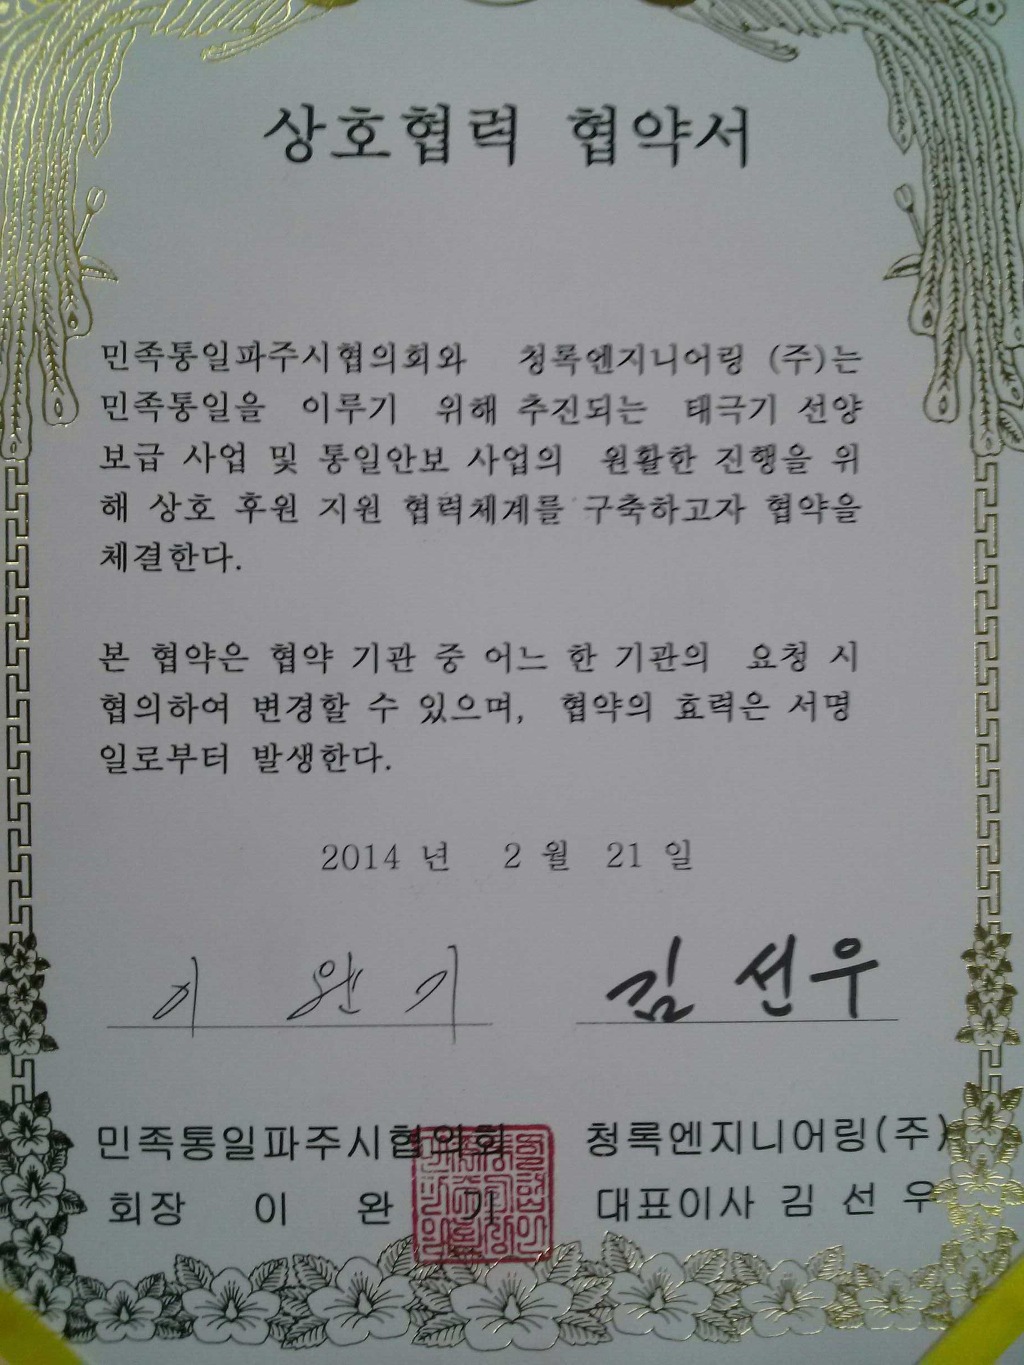 상호협력 협약서
민족통일파주시협의회와 청록엔지니어링 (주)는
민족통일을 이루기 위해 추진되는 태극기 선양
보급 사업 및 통일안보 사업의 원활한 진행을 위
해 상호 후원 지원 협력체계를 구축하고자 협약을
체결한다.
본 협약은 협약 기관 중 어느 한 기관의 요청 시
협의하여 변경할 수 있으며, 협약의 효력은 서명
일로부터 발생한다.
2014 년 2 월 21 일
이 완 기 김 선우
민족통일파주시협의회 청록엔지니어링(주)
회장 이 완 기 대표이사 김 선 우